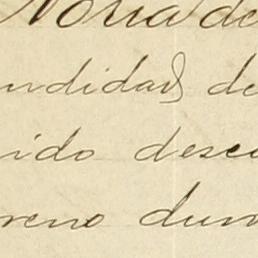 Noria de
ndidad de
nido desc
reno dum